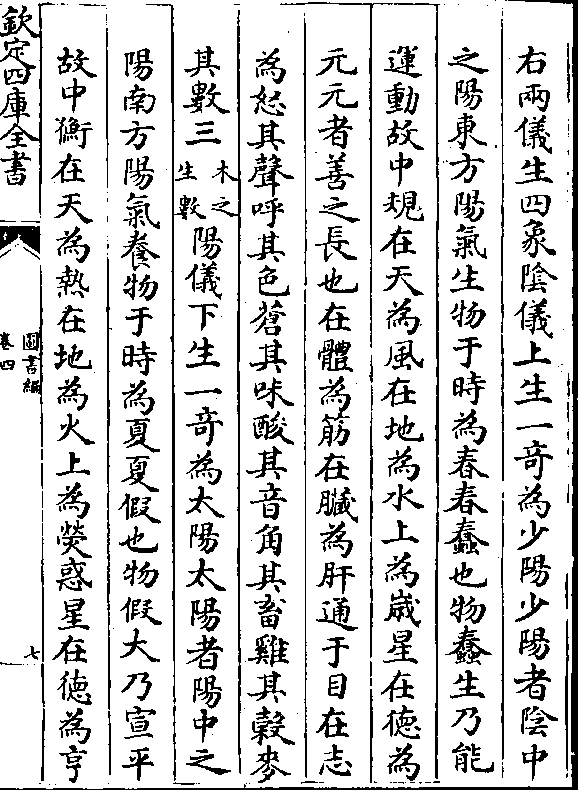 右兩儀生四象陰儀上生一奇為少陽少陽者陰中
之陽東方陽氣生物于時為春春蠢也物蠢生乃能
運動故中規在天為風在地為水上為歲星在德為
元元者善之長也在體為筋在臟為肝通于目在志
為怒其聲呼其色蒼其味酸其音角其畜雞其穀麥
其數三木之生數陽儀下生一奇為太陽太陽者陽中之
陽南方陽氣養物于時為夏夏假也物假大乃宣平
故中衡在天為熱在地為火上為熒惑星在德為亨
欽定四庫全書
圖書編
卷四
七